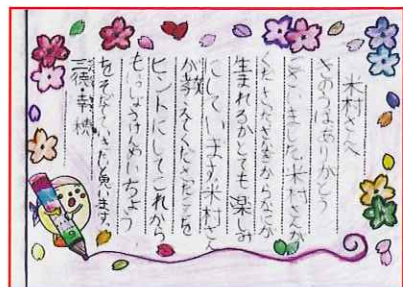 米村さんへ
きのうはありがとう
ございました。米村さんが
くださったさなぎからなにが
生まれるかとても楽しみ
にしています。米村さん
が教えてくださったことを
ヒントにしてこれから
もいっしょうけんめいちょう
をそだてていきたいと思います。